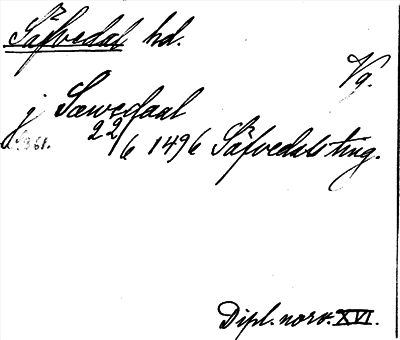 Säfvedal hd.
Vg.
j Sawedaal
22/6 1496 Säfvedals ting.
Dipl. norv. XVI.